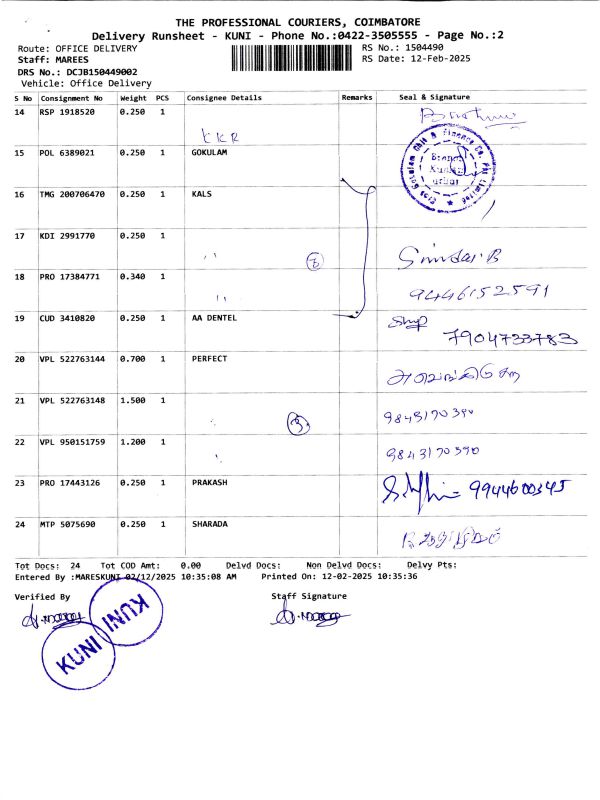 THE PROFESSIONAL COURIERS, COIMBATORE
Delivery Runsheet - KUNI - Phone No.:0422-3505555 - Page No.:2
Route: OFFICE DELIVERY RS No.: 1504490
Staff: MAREES RS Date: 12-Feb-2025
DRS No.: DCJB150449002
Vehicle: Office Delivery
S No Consignment No Weight PCS Consignee Details Remarks Seal & Signature
14 RSP 1918520 0.250 1
KKR
15 POL 6389021 0.250 1 GOKULAM
16 TMG 200706470 0.250 1 KALS
17 KDI 2991770 0.250 1
18 PRO 17384771 0.340 1
9446152591
19 CUD 3410820 0.250 1 AA DENTEL
7904733783
20 VPL 522763144 0.700 1 PERFECT
21 VPL 522763148 1.500 1
3
22 VPL 950151759 1.200 1
9843170390
23 PRO 17443126 0.250 1 PRAKASH
9944600345
24 MTP 5075690 0.250 1 SHARADA
Tot Docs: 24 Tot COD Amt: 0.00 Delvd Docs: Non Delvd Docs: Delvy Pts:
Entered By :MARESKUNI 02/12/2025 10:35:08 AM Printed On: 12-02-2025 10:35:36
Verified By Staff Signature
KUNI
KUNI